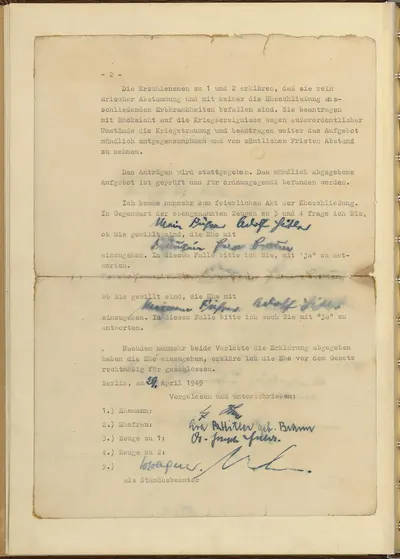 - 2 -
Die Erschienenen zu 1 und 2 erklären, das sie rein
arischer Abstammung und mit keiner die Eheschließung aus-
schließenden Erbkrankheiten befallen sind. Sie beantragen
mit Rücksicht auf die Kriegsereignisse wegen außerordentlicher
Umstände die Kriegstrauung und beantragen weiter das Aufgebot
mündlich entgegenzunehmen und von sämtlichen Fristen Abstand
zu nehmen.
Den Anträgen wird stattgegeben. Das mündlich abgegebene
Aufgebot ist geprüft und für ordnungsgemäß befunden worden.
Ich komme nunmehr zum feierlichen Akt der Eheschließung.
In Gegenwart der obengenannten Zeugen zu 3 und 4 frage ich Sie,
Mein Führer Adolf Hitler
ob Sie gewillt sind, die Ehe mit
Fräulein Eva Braun
einzugehen. In diesem Falle bitte ich Sie, mit "ja" zu ant-
worten.
ob Sie gewillt sind, die Ehe mit
meinem Führer Adolf Hitler
einzugehen. In diesem Falle bitte ich auch Sie mit "ja" zu
antworten.
Nachdem nunmehr beide Verlobte die Erklärung abgegeben
haben die Ehe einzugehen, erkläre ich die Ehe vor dem Gesetz
rechtmäßig für geschlossen.
Berlin, am 29. April 1945
Vorgelesen und unterschrieben:
1.) Ehemann:
2.) Ehefrau: Eva Hitler geb. Braun
3.) Zeuge zu 1: Dr. Joseph Goebbels
4.) Zeuge zu 2:
5.)
als Standesbeamter